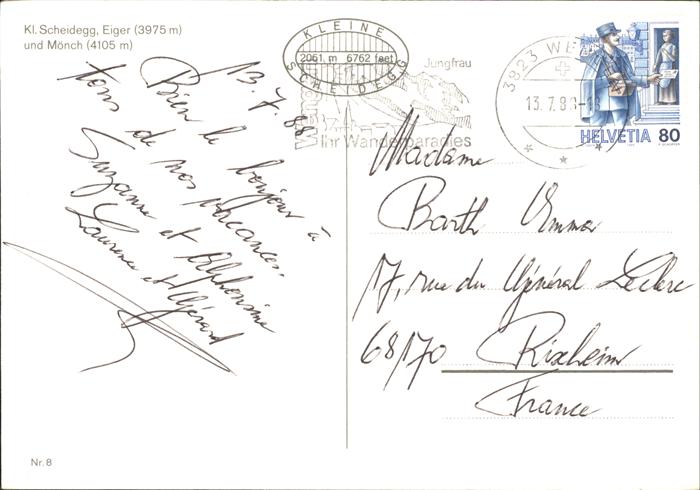 Kl. Scheidegg, Eiger (3975 m)
und Mönch (4105 m)
13.7.88
Bien le bonjour à
tous de nos vacances
Suzanne et Alphonsine
Laurence et Gérard
KLEINE
2061 m 6762 feet
SCHEIDEGG
Jungfrau
Wengen
Ihr Wanderparadies
3823 WE
13.7.88-18
HELVETIA 80
Madame
Barth Emma
17, rue du Général Leclerc
68170 Rixheim
France
Nr. 8